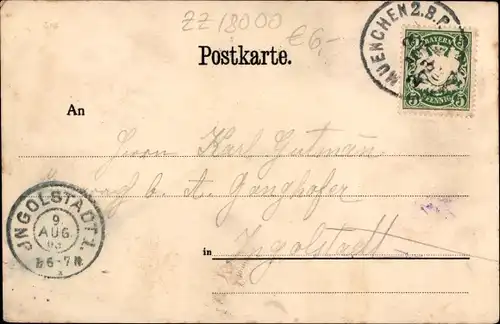 ZZ 18000 €6,-
Postkarte.
MUENCHEN 2. B.P.
BAYERN
5 5
PFENNIG
An
Herrn Karl Gutmann
b. A. Ganghofer
in Ingolstadt
JNGOLSTADT 1.
9
AUG.
6-7N.